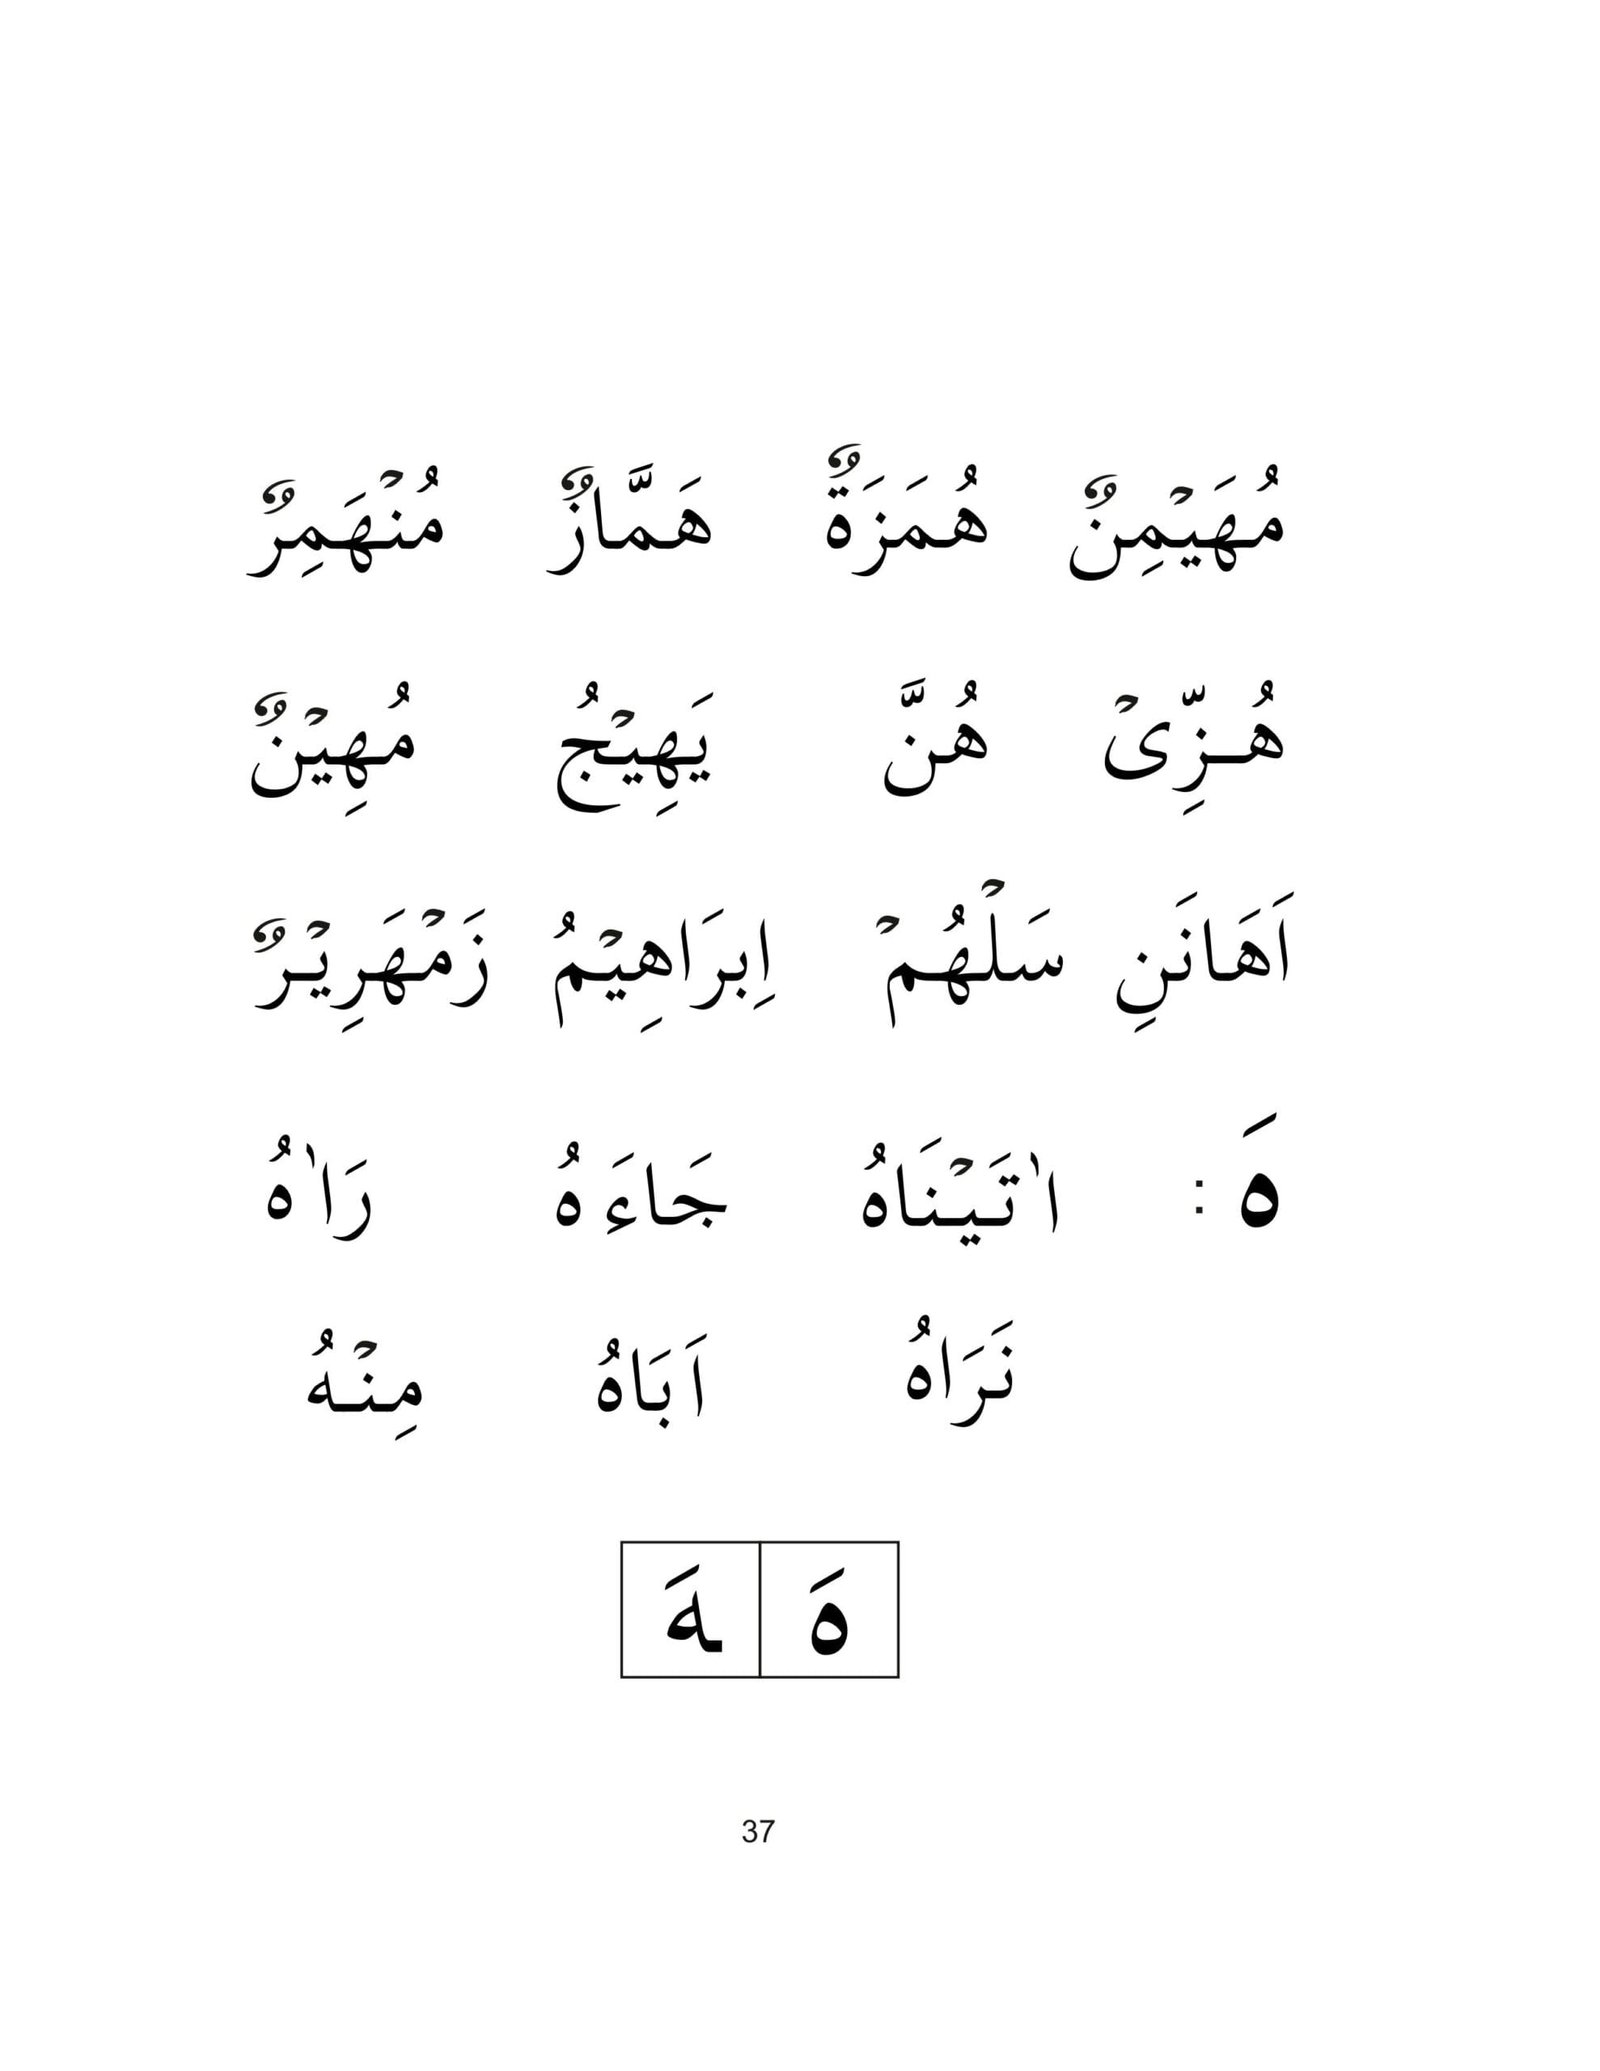 مُهَيْمِنٌ هُمَزَةٌ هَمَّازٌ مُنْهَمِرٌ
هُـزِّىْ هُنَّ يَهِيْجُ مُهِيْنٌ
اَهَانَنِ سَلْهُمْ اِبرَاهِيْمُ زَمْهَرِيْرٌ
هَ : اٰتَيْنَاهُ جَاءَهُ رَاٰهُ
نَرَاهُ اَبَاهُ مِنْهُ
هَ ـهَ
37